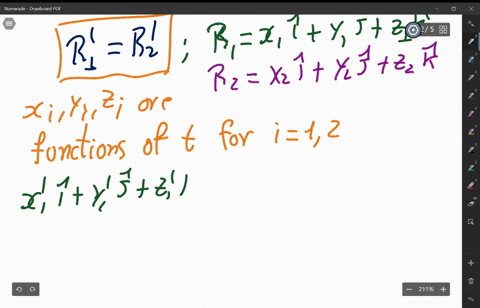 Numerade - Drawboard PDF
R₁' = R₂' ; R₁ = x₁ i⃗ + y₁ j⃗ + z₁ k⃗
2 / 5
R₂ = x₂ i⃗ + y₂ j⃗ + z₂ k⃗
xᵢ, yᵢ, zᵢ are
functions of t for i = 1, 2
x₁' i⃗ + y₁' j⃗ + z₁'
211%